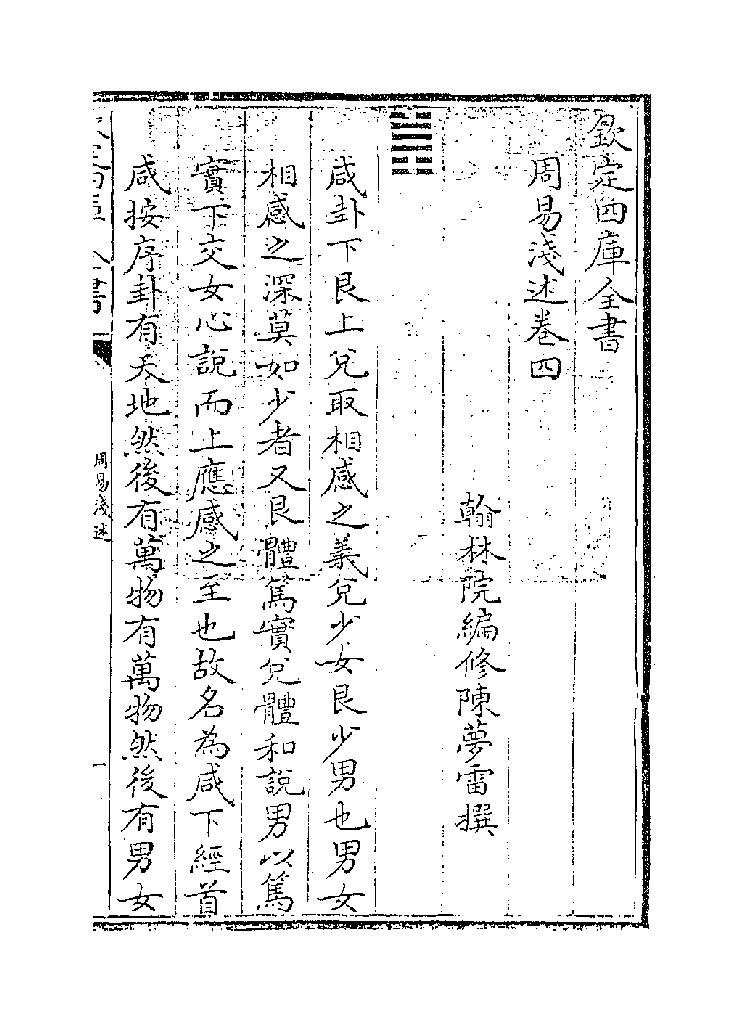 欽定四庫全書
周易淺述卷四
翰林院編修陳夢雷撰
咸卦下艮上兌取相感之義兌少女艮少男也男女
相感之深莫如少者又艮體篤實兌體和說男以篤
實下交女心說而上應感之至也故名為咸下經首
咸按序卦有天地然後有萬物有萬物然後有男女
周易淺述
一